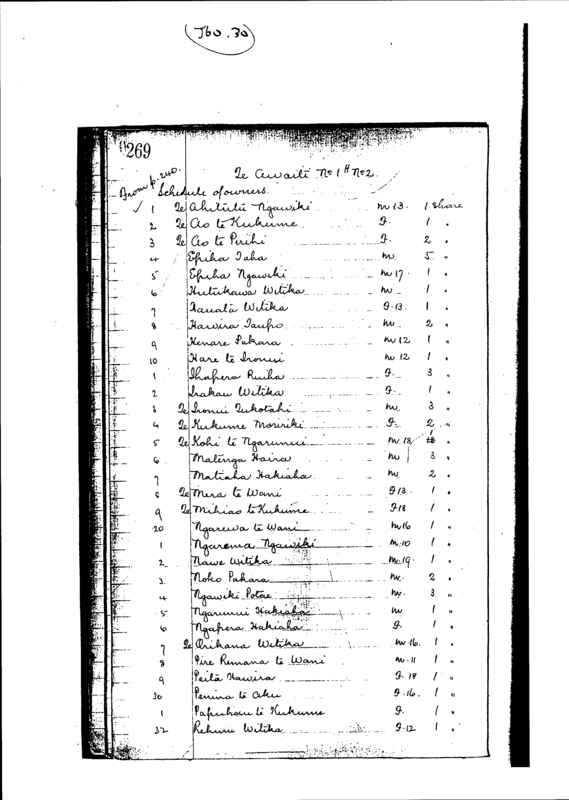 (Jbo. 30)
269
From p. 240.
Te Awaiti No 1 H No 2.
Schedule of owners.
✓ 1 Te Ahitutu Ngawiki m 13. 1 share
2 Te Ao te Kukume F. 1 "
3 Te Ao te Pirihi F. 2 "
4 Epiha Taha m. 5 "
5 Epiha Ngawiki m 17. 1 "
6 Hutukawa Witika m 1 "
7 Witika F. 13. 1 "
8 Hawira Taupo m. 2 "
9 Henare Pukara m 12 1 "
10 Hare te m 12 1 "
1 Ihapera Ruiha F. 3 "
2 Irakau Witika F. 1 "
3 Te Ironui Tukotahi m. 3 "
4 Te Kukume Moririki F. 2 "
5 Te Kohi te Ngarunui m. 13 1 "
6 Matenga Haira m 3 "
7 Matiaha Hakiaha m. 2 "
8 Te Mera te Wani F 13. 1 "
9 Te Mihiao te Kukume F 18 1 "
20 Ngarewa te Wani m 16 1 "
1 Ngarema Ngawiki m. 10 1 "
2 Nawe Witika m. 19. 1 "
3. Noko Pahara m. 2 "
4 Ngawiki Potae m. 3 "
5 Ngarunui Hakiaha m 1 "
6 Ngapera Hakiaha F. 1 "
7 Te Orikana Witika m. 16. 1 "
8 Pire Remana te Wani m. 11 1 "
9 Peita Hawira F. 18 1 "
30 Penina te Aku F. 16. 1 "
1 te Kukume F. 1 "
32 Rehunu Witika F. 12 1 "